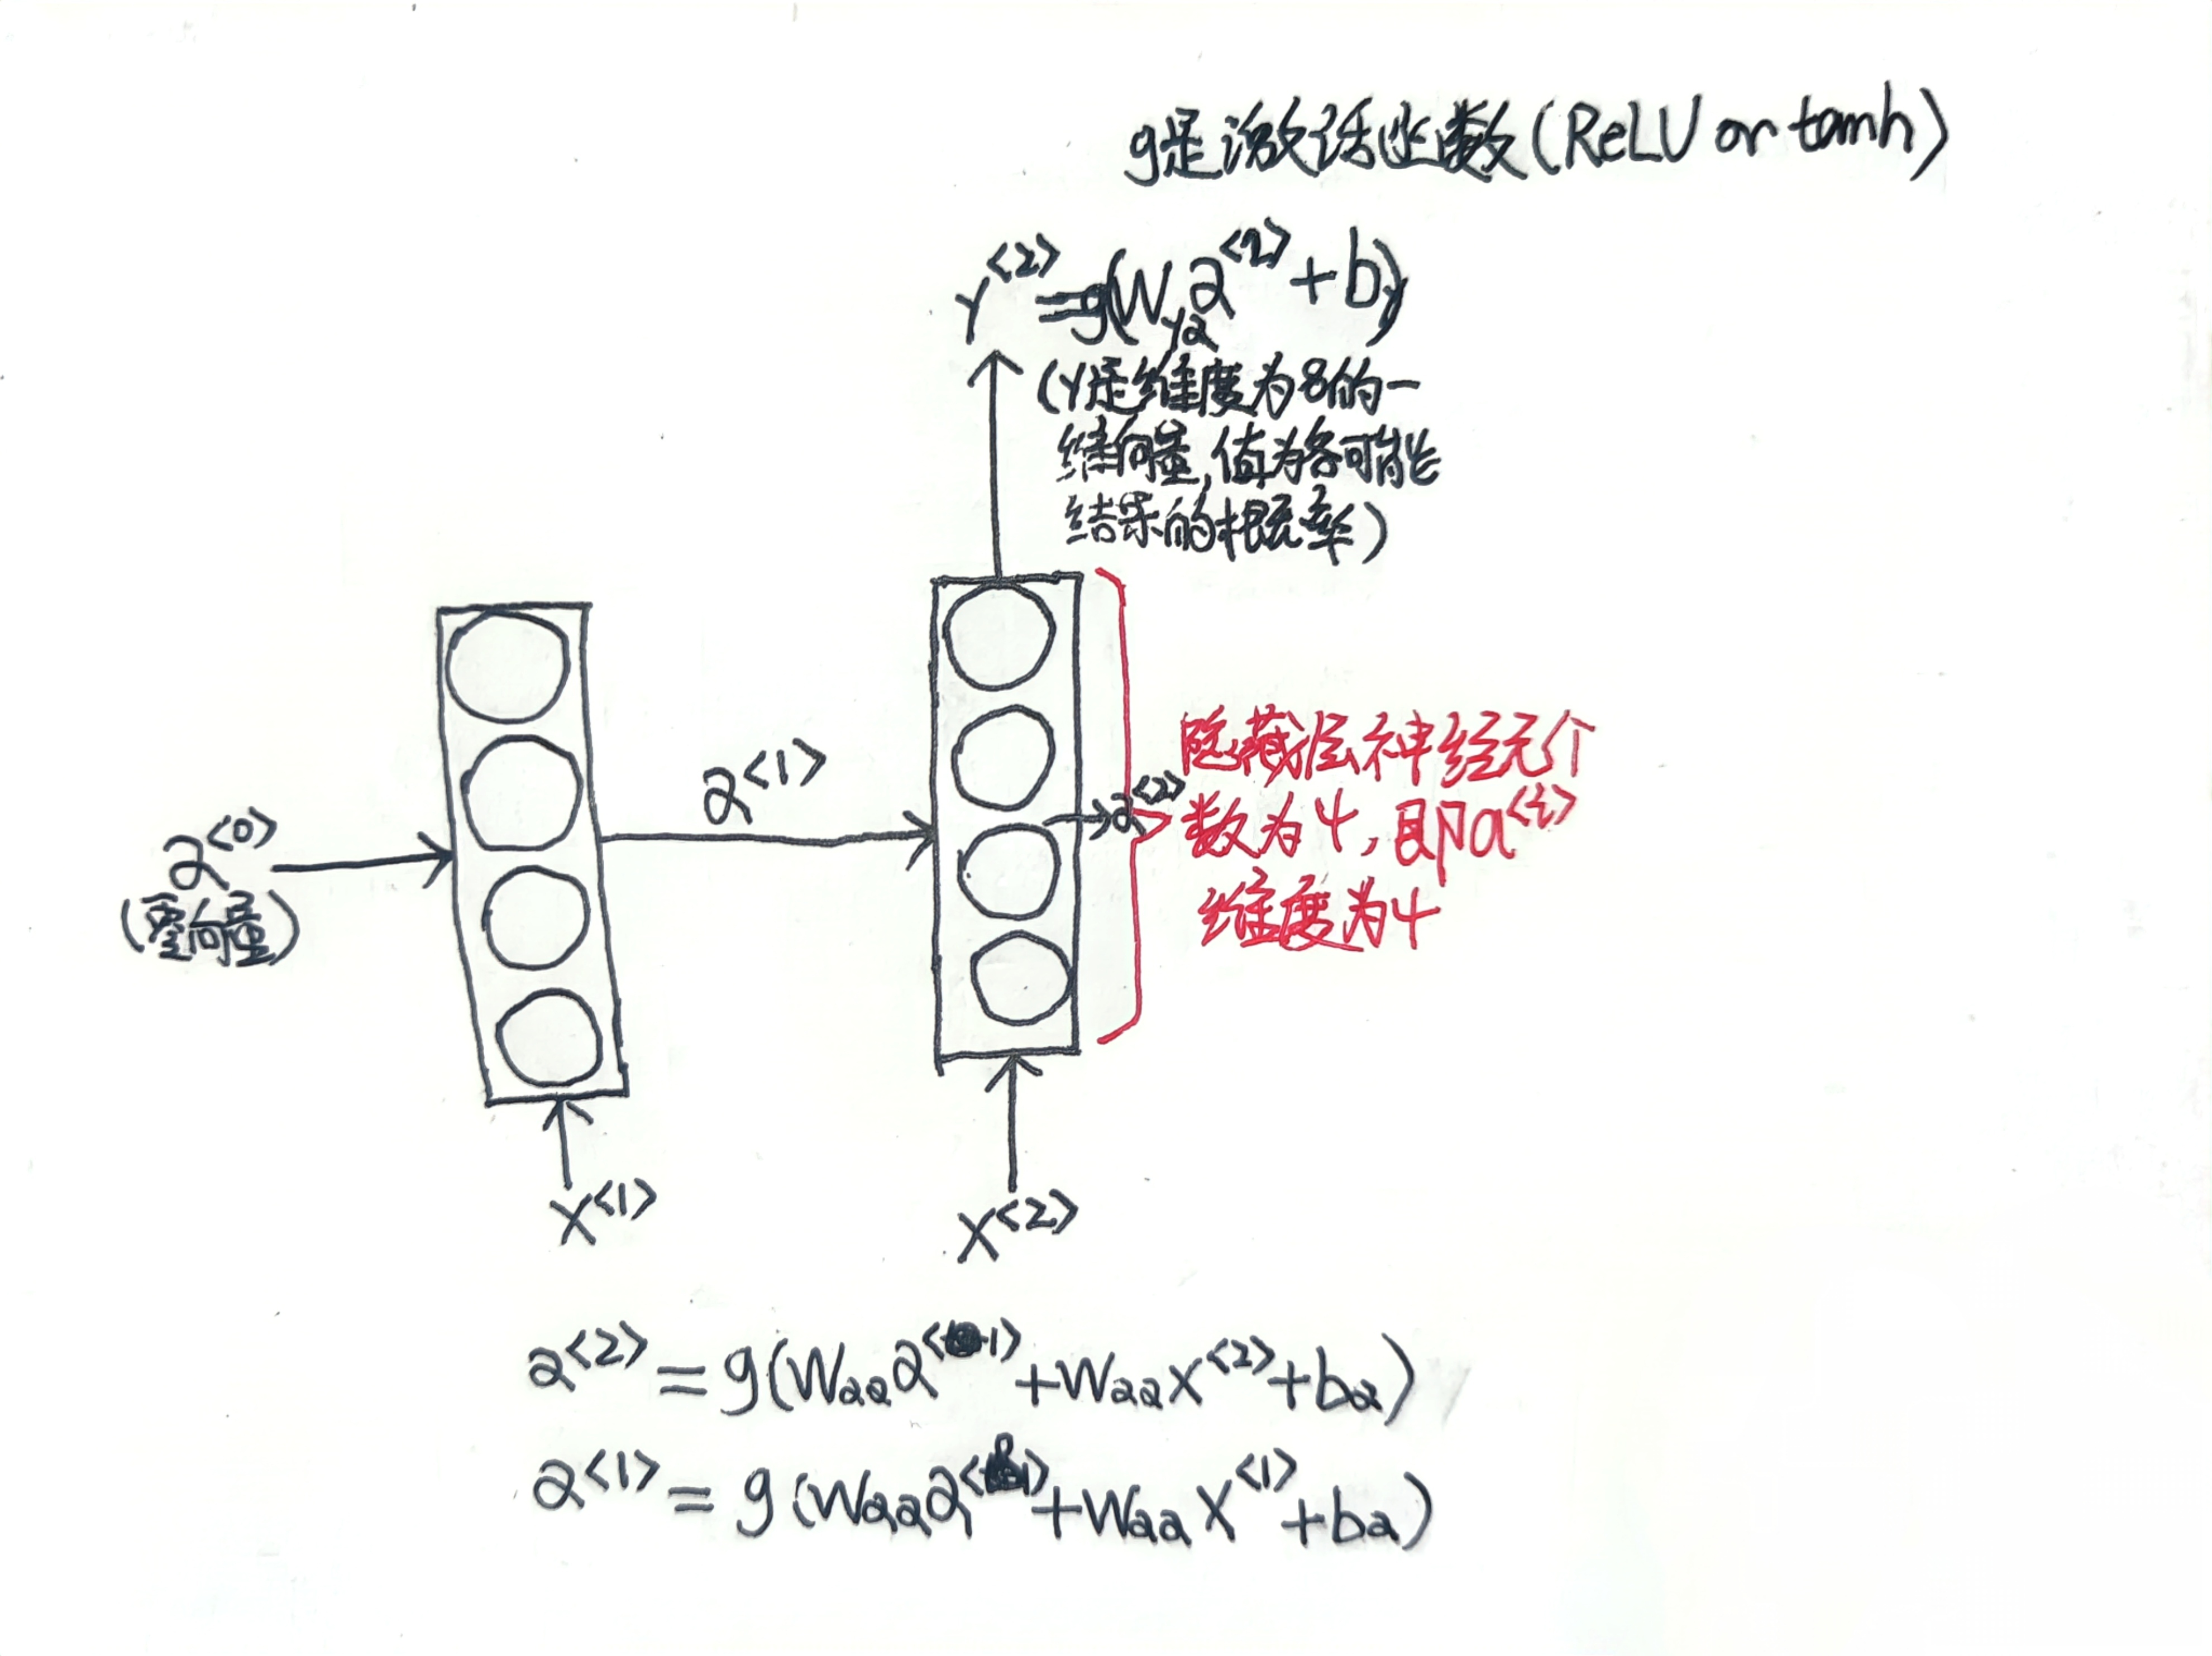 g是激活函数(ReLU or tanh)
y<2>=g(Wya a<2>+by)
(y是维度为8的一
维向量,值为各可能
结果的概率)
a<1>
a<2>
隐藏层神经元个
数为4,即a<i>
维度为4
a<0>
(零向量)
x<1>
x<2>
a<2>=g(Waa a<1>+Waa x<2>+ba)
a<1>=g(Waa a<0>+Waa x<1>+ba)